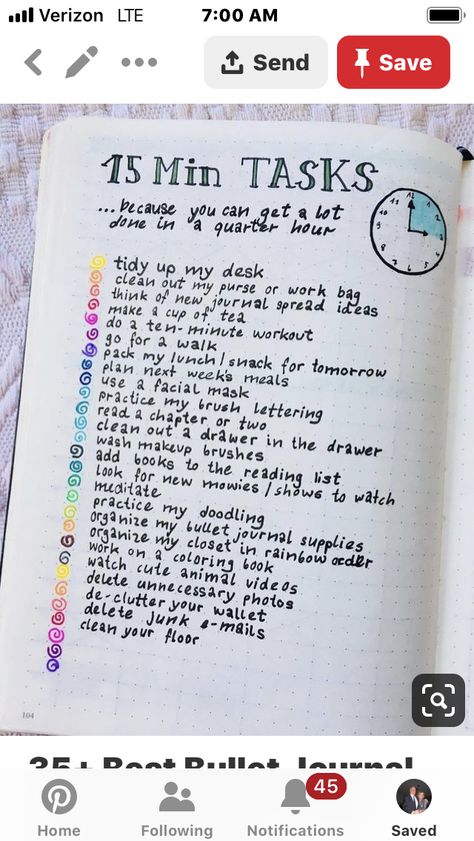 Verizon LTE 7:00 AM
Send Save
15 Min TASKS
...because you can get a lot
done in a quarter hour
12
11 1
10 2
9 3
8 4
7 6 5
tidy up my desk
clean out my purse or work bag
think of new journal spread ideas
make a cup of tea
do a ten-minute workout
go for a walk
pack my lunch/snack for tomorrow
plan next week's meals
use a facial mask
practice my brush lettering
read a chapter or two
clean out a drawer in the drawer
wash makeup brushes
add books to the reading list
look for new mowies/shows to watch
meditate
practice my doodling
organize my bullet journal supplies
organize my closet in rainbow order
work on a coloring book
watch cute animal videos
delete unnecessary photos
de-clutter your wallet
delete junk e-mails
clean your floor
104
35+ Best Bullet Journal
45
Home Following Notifications Saved